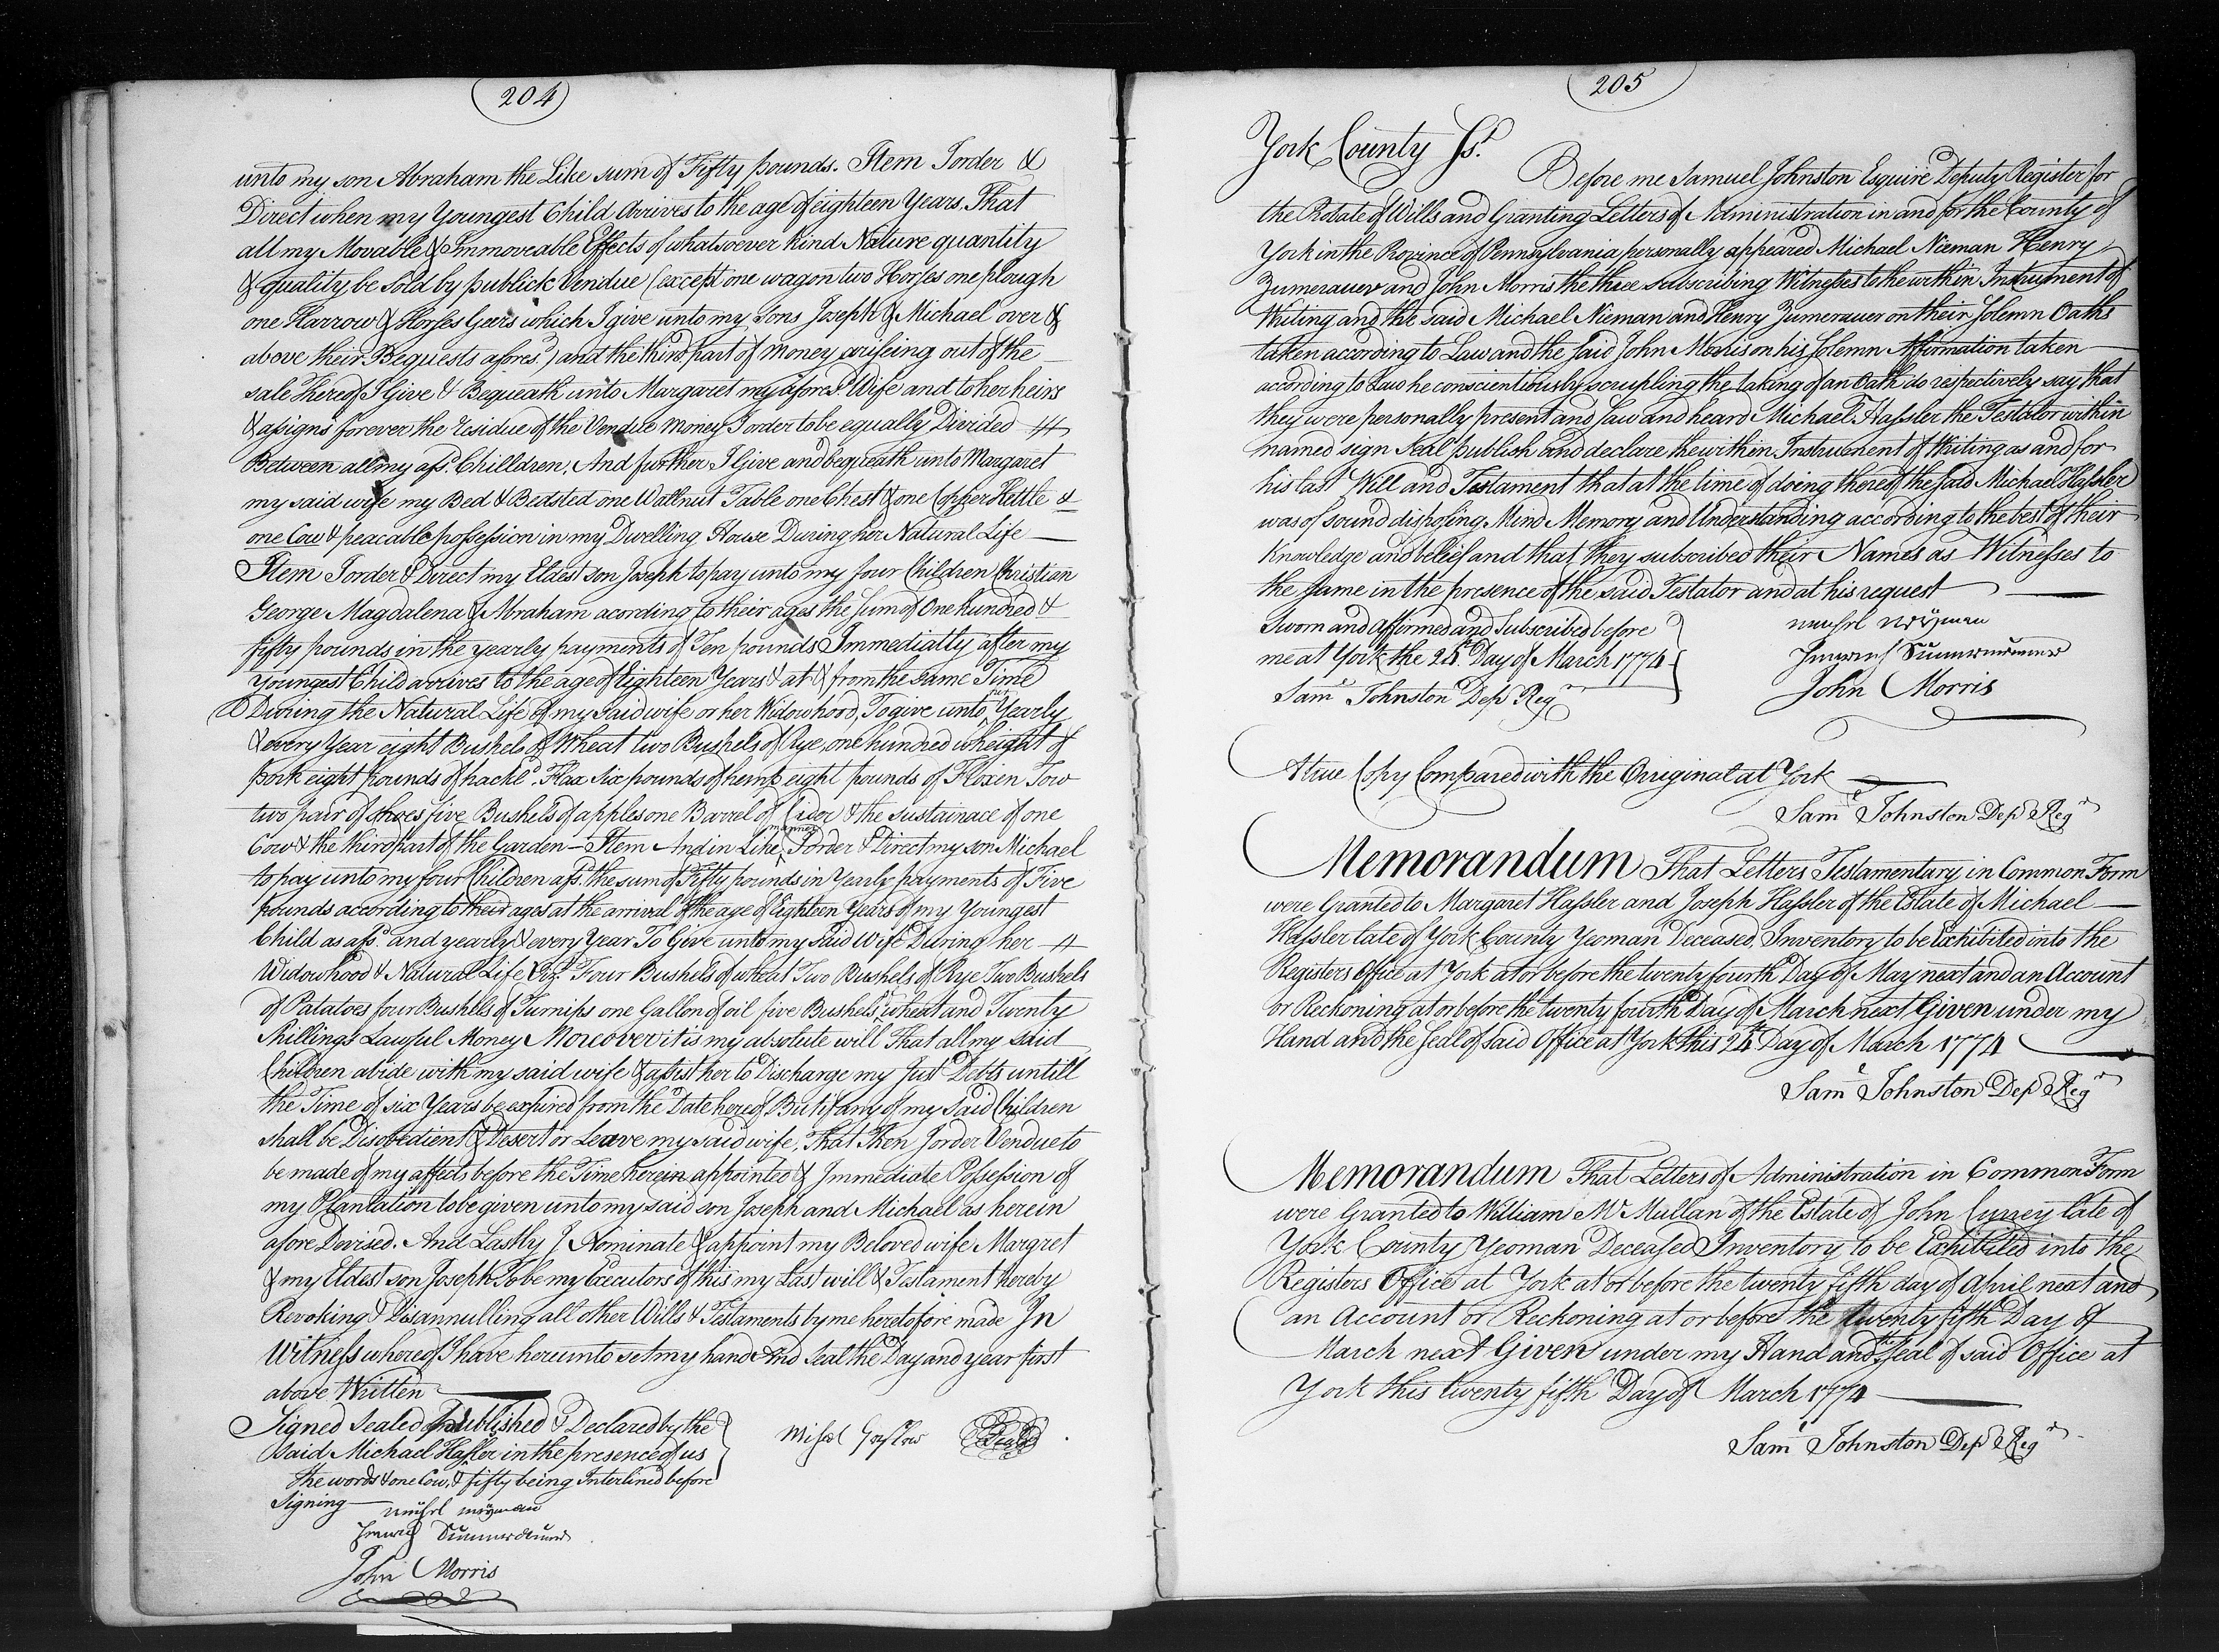 204
unto my son Abraham the Like sum of Fifty pounds. Item I order &
Direct when my Youngest Child Arrives to the age of eighteen Years. That
all my Movable & Immoveable Effects of whatsoever Kind Nature quantity
& quality be Sold by publick Vendue (except one wagon two Horses one plough
one Harrow & Horses Geers which I give unto my sons Joseph & Michael over &
above their Bequests afores.d) and the third part of money ariseing out of the
sale Thereof I Give & Bequeath unto Margaret my afores.d Wife and to her heirs
& assigns forever the residue of the Vendue Money I order to be equally Divided
Between all my afs.d Chilldren, And further I Give and bequeath unto Margaret
my said wife my Bed & Bedsted one Wallnut Table one Chest & one Copper Kettle &
one Cow & peacable possession in my Dwelling House During her Natural Life
Item I order & Direct my Eldest son Joseph to pay unto my four Children Christian
George Magdalena & Abraham acording to their ages the Sum of One hundred &
fifty pounds in the yearly payments of Ten pounds Immediatly after my
Youngest Child arrives to the age of Eighteen Years & at & from the same Time
During the Natural Life of my said wife or her Widowhood, To give unto her Yearly
& every Year eight Bushels of Wheat two Bushels of Rye, one hundred wheight of
pork eight pounds of hackl.d Flax six pounds of hemp eight pounds of Flaxen Tow
two pair of shoes five Bushels of apples one Barrel of Cider & the sustainace of one
Cow & the third part of the Garden – Item And in Like manner I order & Direct my son Michael
to pay unto my four Children afs.d the sum of Fifty pounds in Yearly payments of Five
pounds according to their ages at the arrival of the age of Eighteen Years of my Youngest
Child as afs.d and yearly & every Year To Give unto my said Wife During her
Widowhood & Natural Life Viz.t Four Bushels of wheat Two Bushels of Rye Two Bushels
of Patatoes four Bushels of Turnips one Gallon of oil five Bushels wheat and Twenty
Shillings Lawful Money Moreover it is my absolute will That all my said
Children abide with my said wife & assist her to Discharge my Just Debts untill
the Time of six Years be expired from the Date hereof But if any of my said Children
shall be Disobedient & Desert or Leave my said wife, That Then I order Vendue to
be made of my affects before the Time herein appointed & Immediate Possession of
my Plantation to be given unto my said son Joseph and Michael as herein
afore Devised. And Lastly I Nominate & appoint my Beloved wife Margret
& my Eldest son Joseph To be my Executors of this my Last will & Testament hereby
Revoking & Disannulling all other Wills & Testaments by me heretofore made In
Witness whereof I have hereunto set my hand And Seal the Day and year first
above Written
Signed Sealed published & Declared by the
Said Michael Hassler in the presence of us
the words & one Cow, & fifty being Interlined before
Signing
Seal
John Morris
205
York County Ss.
Before me Samuel Johnston Esquire Deputy Register for
the Probate of Wills and Granting Letters of Administration in and for the County of
York in the Province of Pennsylvania personally appeared Michael Nieman Henry
Zumerauer and John Morris the three subscribing Witnesses to the within Instrument of
Writing and the said Michael Nieman and Henry Zumerauer on their Solemn Oaths
taken according to Law and the said John Morris on his solemn Affirmation taken
according to Law he conscientiously scrupling the taking of an Oath do respectively say that
they were personally present and saw and heard Michael Hassler the Testator within
named sign Seal publish and declare the within Instrument of Writing as and for
his last Will and Testament that at the time of doing thereof the said Michael Hassler
was of sound disposing Mind Memory and Understanding according to the best of their
Knowledge and belief and that they subscribed their Names as Witnesses to
the Same in the presence of the said Testator and at his request
Sworn and Affirmed and Subscribed before
me at York the 24th Day of March 1774
Saml Johnston Dep Regr
John Morris
A true Copy Compared with the Original at York
Saml Johnston Dep Regr
Memorandum That Letters Testamentary in Common Form
were Granted to Margaret Hassler and Joseph Hassler of the Estate of Michael
Hassler late of York County Yeoman Deceased, Inventory to be Exhibited into the
Registers Office at York at or before the twenty fourth Day of May next and an Account
or Reckoning at or before the twenty fourth Day of March next Given under my
Hand and the Seal of said Office at York this 24th Day of March 1774
Saml Johnston Dep Regr
Memorandum That Letters of Administration in Common Form
were Granted to William Mc Mullan of the Estate of John late of
York County Yeoman Deceased Inventory to be Exhibited into the
Registers Office at York at or before the twenty fifth day of April next and
an Account or Reckoning at or before the twenty fifth Day of
March next Given under my Hand and Seal of said Office at
York this twenty fifth Day of March 1774
Saml Johnston Dep Regr